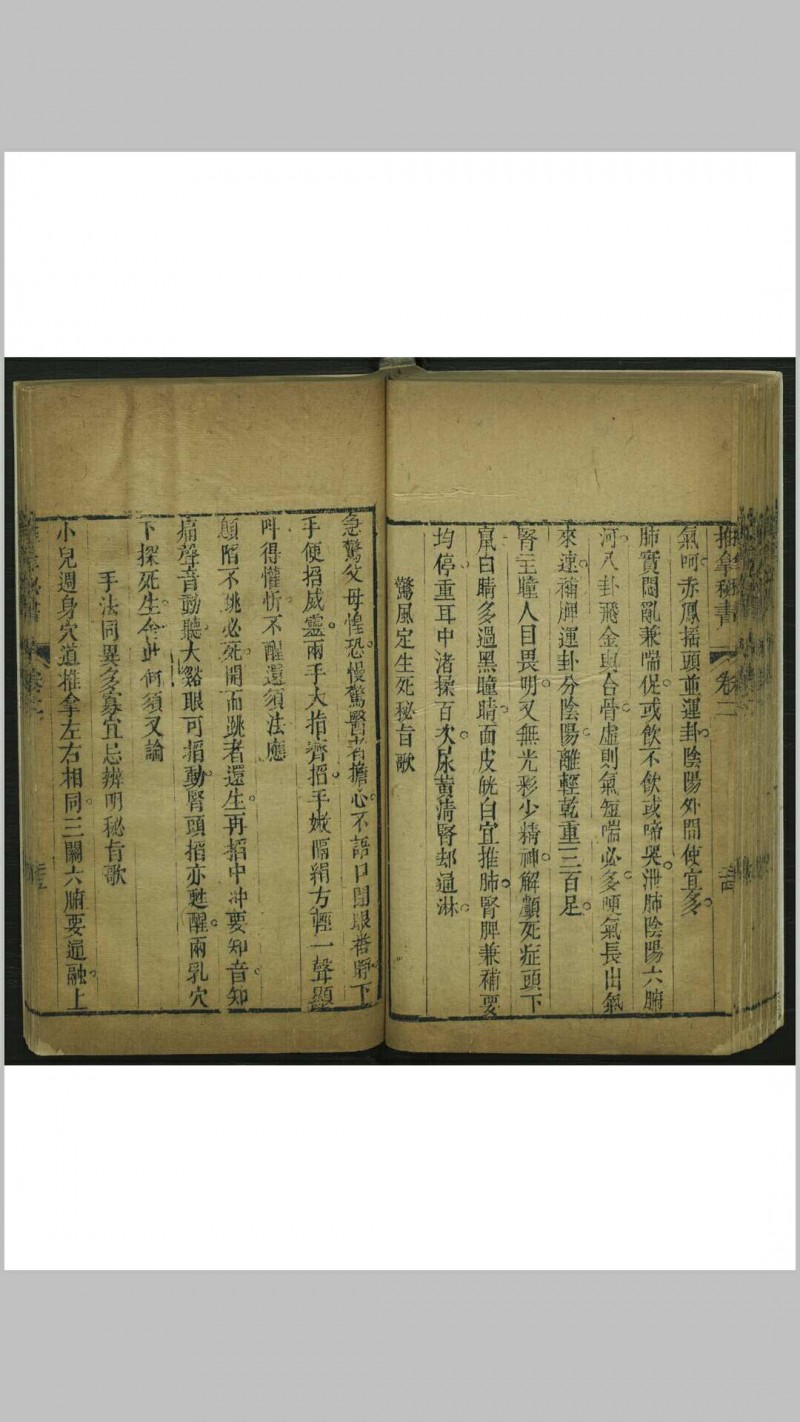 推拿秘書 卷二
氣呵赤鳳搖頭並運卦陰陽外間使宜多
肺實悶亂兼喘促或飲不飲或啼哭泄肺陰陽六腑
河八卦飛金與合骨虛則氣短喘必多哽氣長出氣
來速補脾運卦分陰陽離輕乾重三百足
腎主瞳人目畏明又無光彩少精神解顱死症頭下
竄白睛多過黑瞳睛面皮㿠白宜推肺腎脾兼補要
均停重耳中渚揉百次尿黃清腎却通淋
驚風定生死秘旨歌
急驚父母惶恐慢驚醫者擔心不語口閉眼番睜下
手便掐威靈兩手大指齊掐手嫩隔絹方輕一聲
叫得懽忻不醒還須法應
顛陷不跳必死開而跳者還生再掐中冲要知音知
痛聲音動聽大谿眼可掐動腎頭掐亦甦醒兩乳穴
下探死生
何須又論
手法同異多寡宜忌辨明秘旨歌
小兒週身穴道推拿左右相同三關六腑要通融上